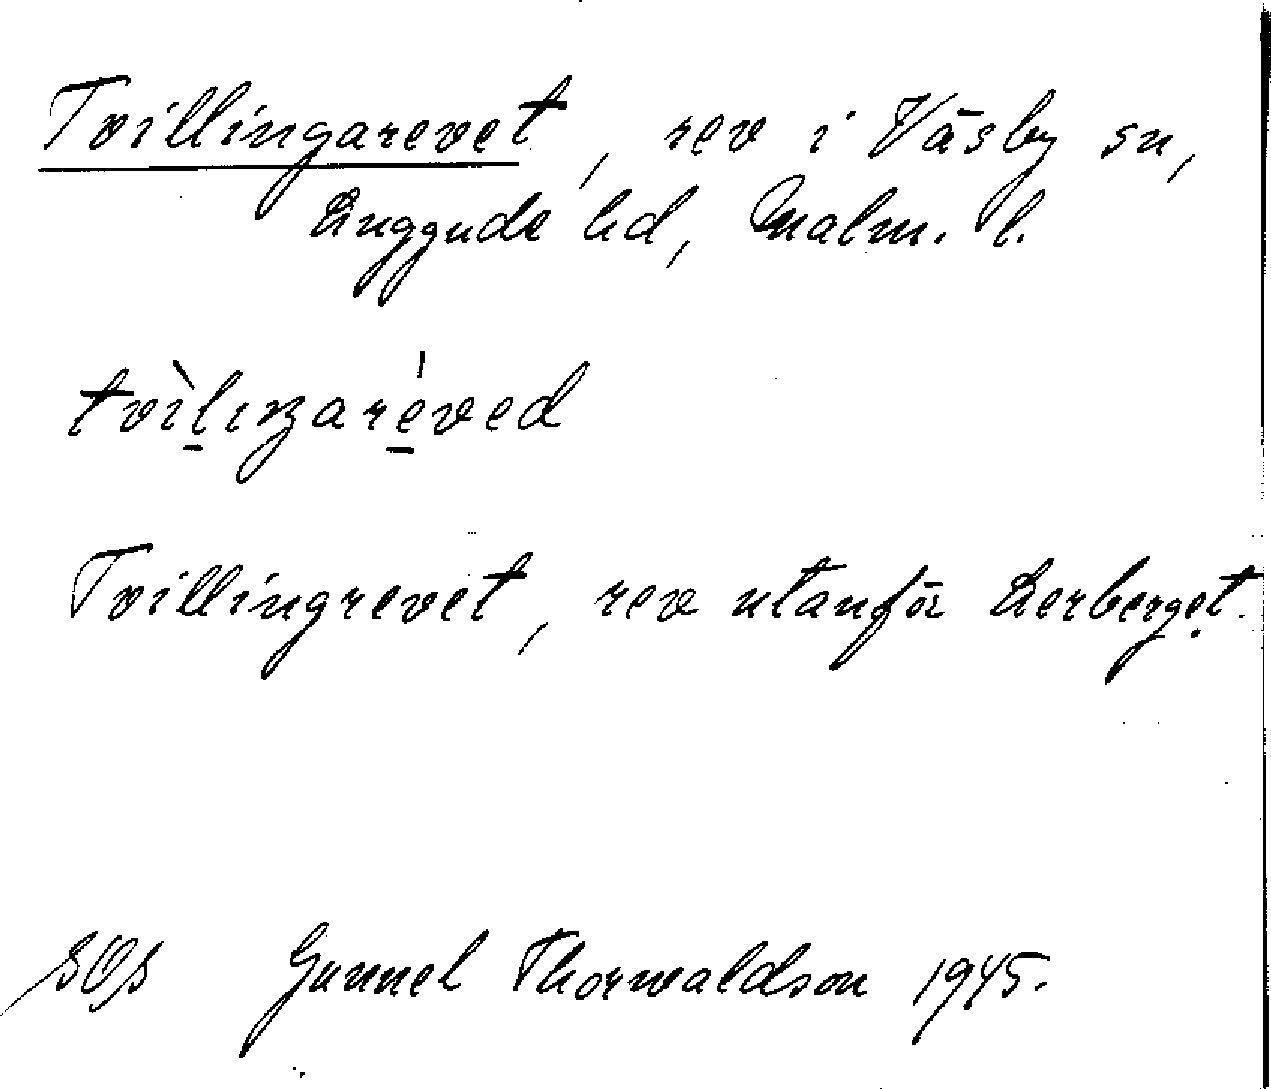 Tvillingarevet, rev i Väsby sn,
Luggude hd, Malm. l.
tvìlıŋaréved
Tvillingrevet, rev utanför Lerberget.
SOS Gunnel Thorwaldson 1945.